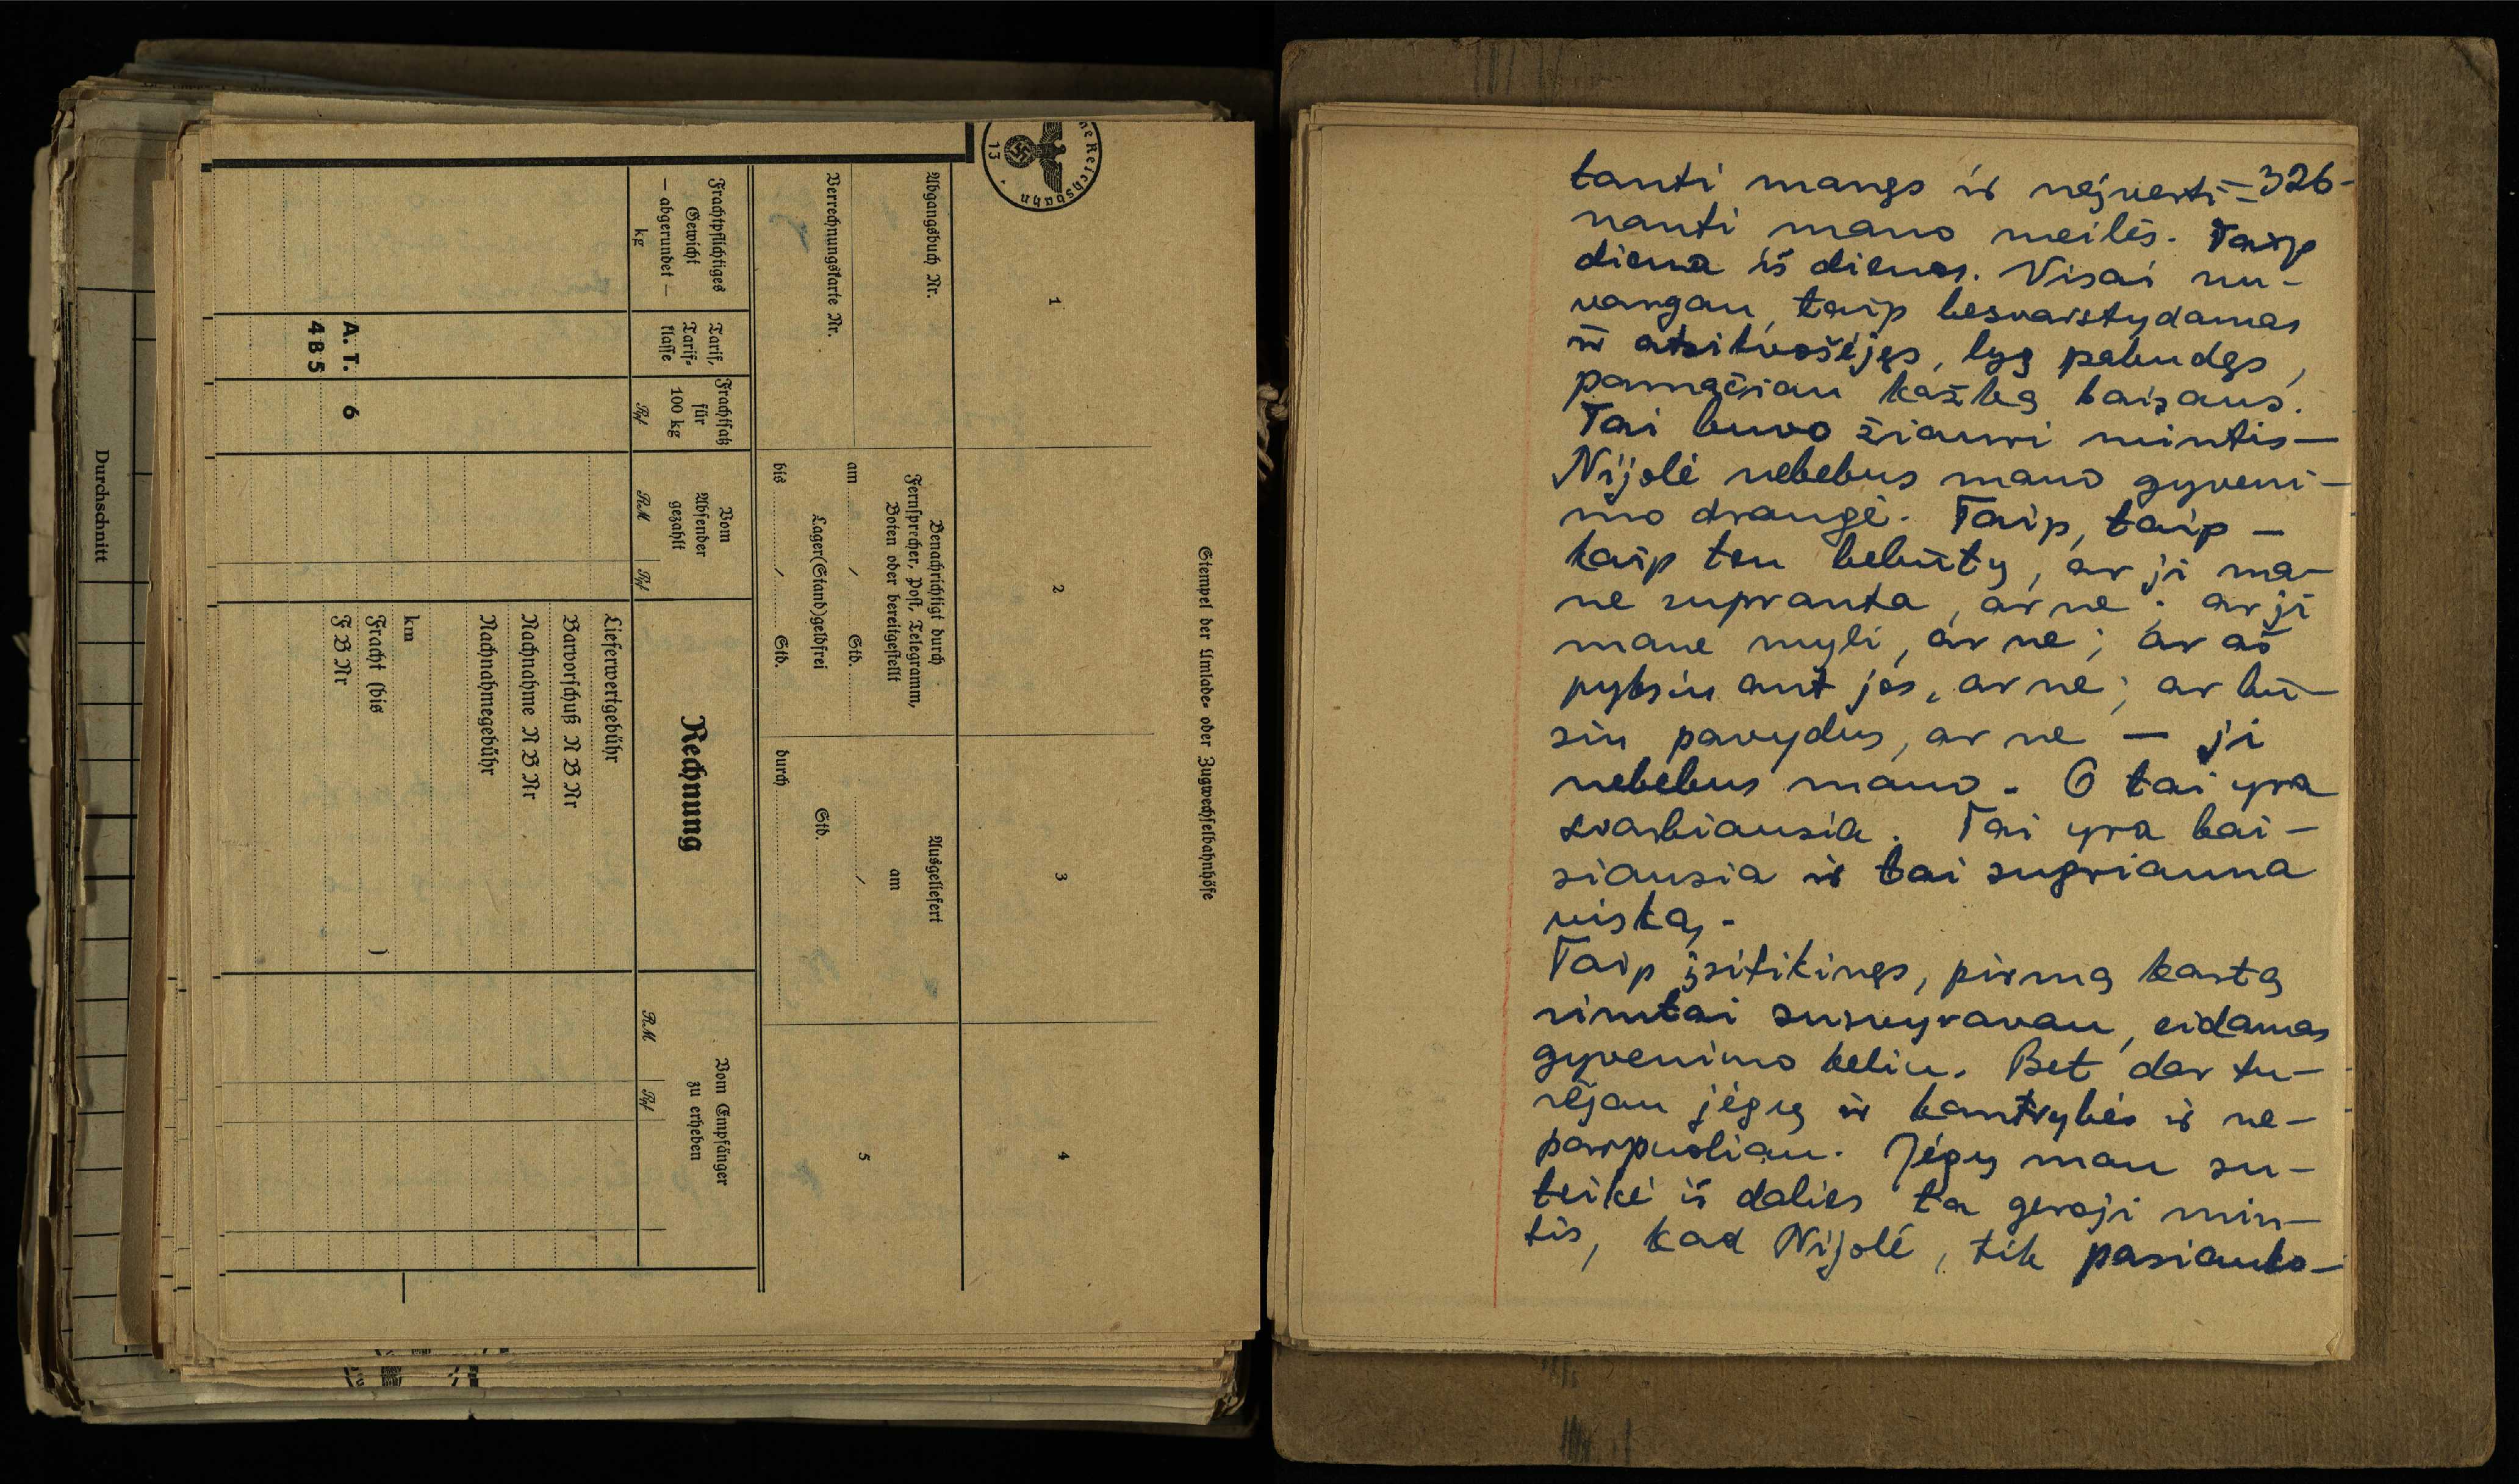 Durchschnitt
ne Reichsbahn
13
Stempel der Umlade- oder Zugwechselbahnhöfe
1
2
3
4
5
Abgangsbuch Nr.
Verrechnungskarte Nr.
Benachrichtigt durch
Fernsprecher, Post, Telegramm,
Boten oder bereitgestellt
am / Std.
Lager(Stand)geldfrei
bis / Std.
Ausgeliefert
am
/
Std.
durch
Frachtpflichtiges
Gewicht
— abgerundet —
kg
Tarif,
Tarif-
klasse
Frachtsatz
für
100 kg
Rpf
Vom
Absender
gezahlt
RM Rpf
Rechnung
Vom Empfänger
zu erheben
RM Rpf
Lieferwertgebühr
Barvorschuß N B Nr
Nachnahme N B Nr
Nachnahmegebühr
km
Fracht (bis )
F B Nr
A. T. 6
4 B 5
-326-
tanti manęs ir neįverti-
nanti mano meilės. Taip
diena iš dienos. Visai nu-
vargau, taip besvaistydamas
ir atsikvošėjęs, lyg pabudęs,
pamačiau kažką baisaus.
Tai buvo žiauri mintis—
Nijolė nebebus mano gyveni-
mo draugė. Taip, taip —
kaip ten bebūtų, ar ji ma-
ne supranta, ar ne; ar ji
mane myli, ar ne; ar aš
pyksiu ant jos, ar ne; ar bū-
siu pavydus, ar ne — ji
nebebus mano. O tai yra
svarbiausia. Tai yra bai-
siausia ir tai sugriauna
viską.
Taip įsitikinęs, pirmą kartą
rimtai susvyravau, eidamas
gyvenimo keliu. Bet dar tu-
rėjau jėgų ir kantrybės ir ne-
parpuoliau. Jėgų man su-
teikė iš dalies ta geroji min-
tis, kad Nijolė, tik pasiauko-